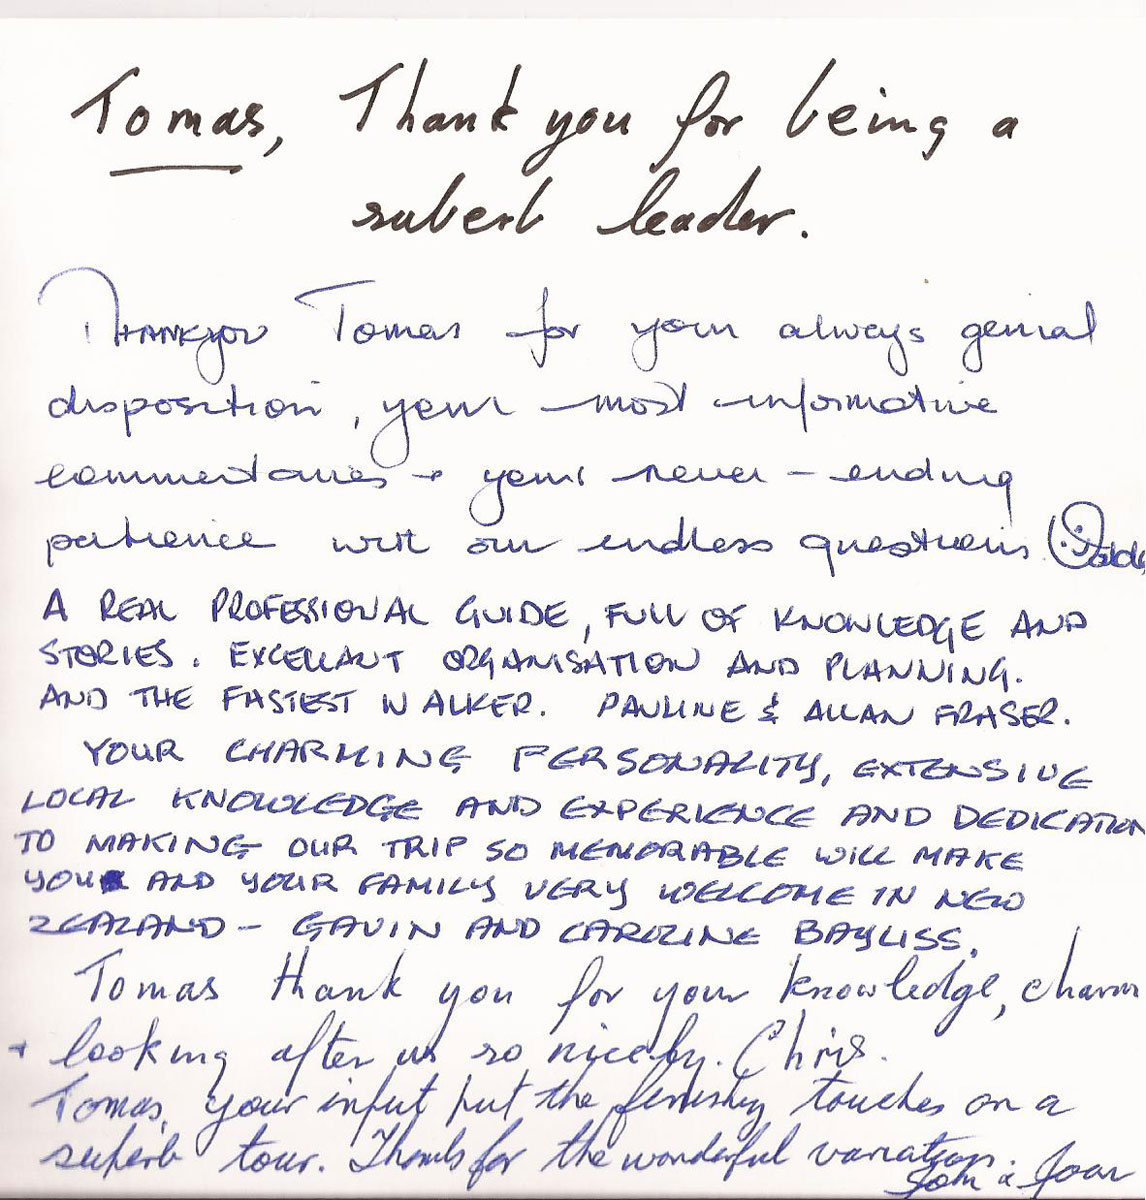 Tomas, Thank you for being a
superb leader.
Thankyou Tomas for your always genial
disposition, your most informative
commentaries + your never-ending
patience with our endless questions.
A REAL PROFESSIONAL GUIDE, FULL OF KNOWLEDGE AND
STORIES. EXCELLANT ORGANISATION AND PLANNING.
AND THE FASTEST WALKER. PAULINE & ALLAN FRASER.
YOUR CHARMING PERSONALITY, EXTENSIVE
LOCAL KNOWLEDGE AND EXPERIENCE AND DEDICATION
TO MAKING OUR TRIP SO MEMORABLE WILL MAKE
YOU AND YOUR FAMILY VERY WELCOME IN NEW
ZEALAND - GAVIN AND CAROLINE BAYLISS.
Tomas thank you for your knowledge, charm
+ looking after us so nicely. Chris.
Tomas, your input put the finishing touches on a
superb tour. Thanks for the wonderful variation.
& Joan